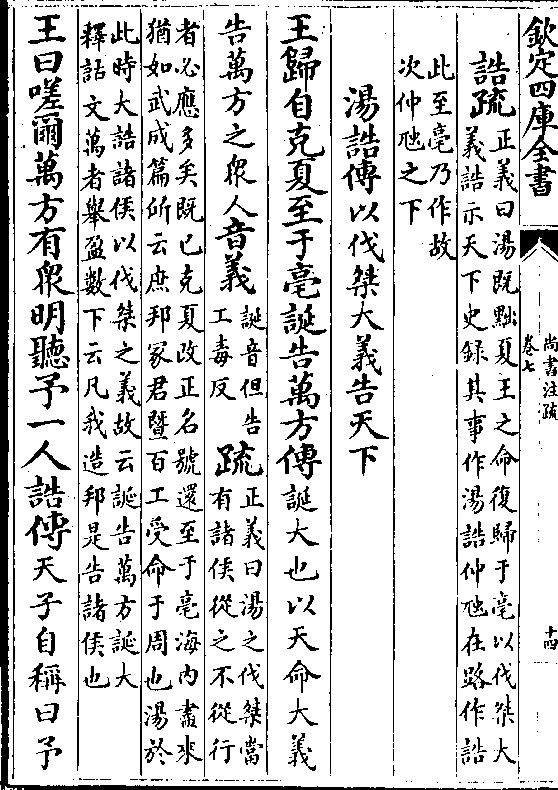 欽定四庫全書
尚書注疏
卷七
十四
誥疏正義曰湯既黜夏王之命復歸于亳以伐桀大
義誥示天下史録其事作湯誥仲虺在路作誥
此至亳乃作故
次仲虺之下
湯誥傳以伐桀大義告天下
王歸自克夏至于亳誕告萬方傳誕大也以天命大義
告萬方之衆人音義誕音但告
工毒反疏正義曰湯之伐桀當
有諸侯從之不從行
者必應多矣既已克夏改正名號還至于亳海内盡來
猶如武成篇所云庶邦冢君暨百工受命于周也湯於
此時大誥諸侯以伐桀之義故云誕告萬方誕大
釋詁文萬者舉盈數下云凡我造邦是告諸侯也
王曰嗟爾萬方有衆明聽予一人誥傳天子自稱曰予